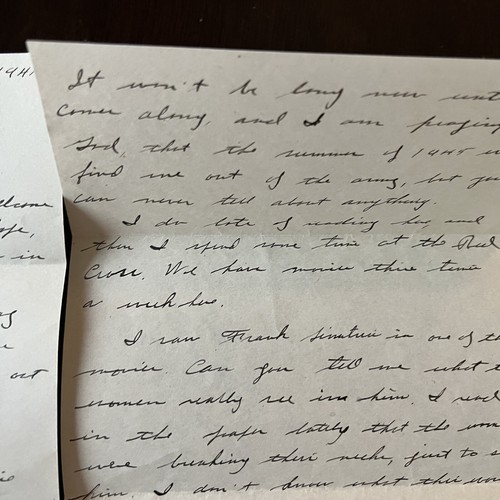 It won't be long now
comes along, and I am praying
God, that the summer of 1945
find me out of the army, but you
can never tell about anything.
I do lots of reading here, and
then I spend some time at the Red
Cross. We have movies three times
a week here.
I saw Frank Sinatra in one of the
movies. Can you tell me what
women really see in him. I read
in the paper lately that the
were breaking their necks, just to
him. I don't know what this
welcome
in
out